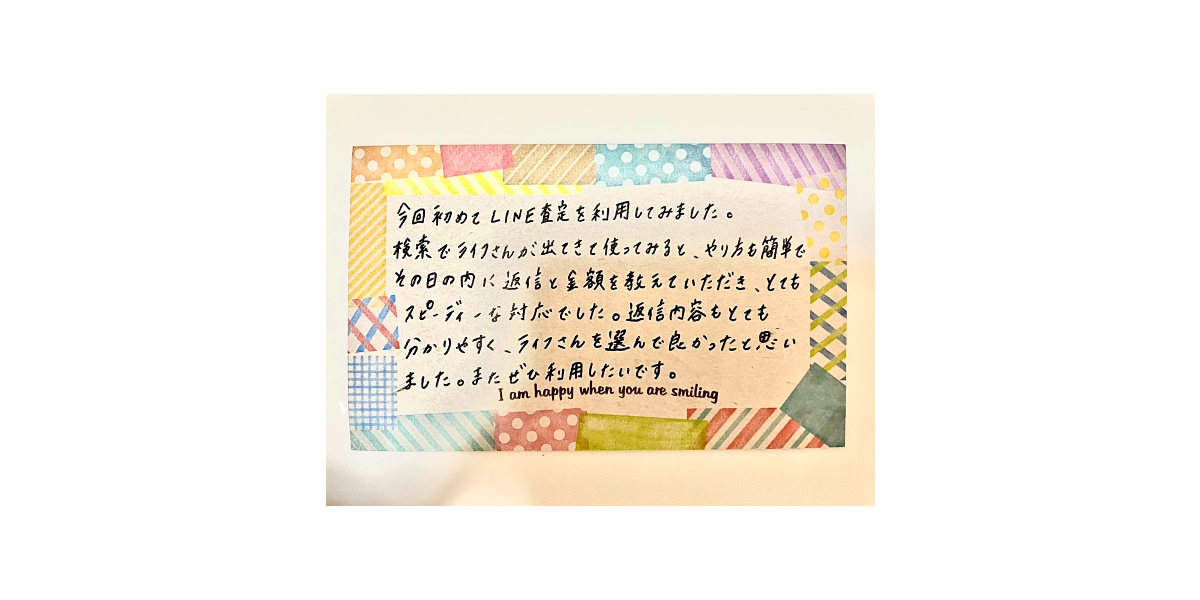 今回初めてLINE査定を利用してみました。
検索でライフさんが出てきて使ってみると、やり方も簡単で
その日の内に返信と金額を教えていただき、とても
スピーディーな対応でした。返信内容もとても
分かりやすく、ライフさんを選んで良かったと思い
ました。またぜひ利用したいです。
I am happy when you are smiling